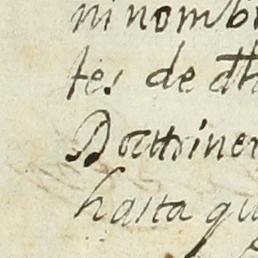 ni nombr
tes de dh
Dottriner
hasta qu